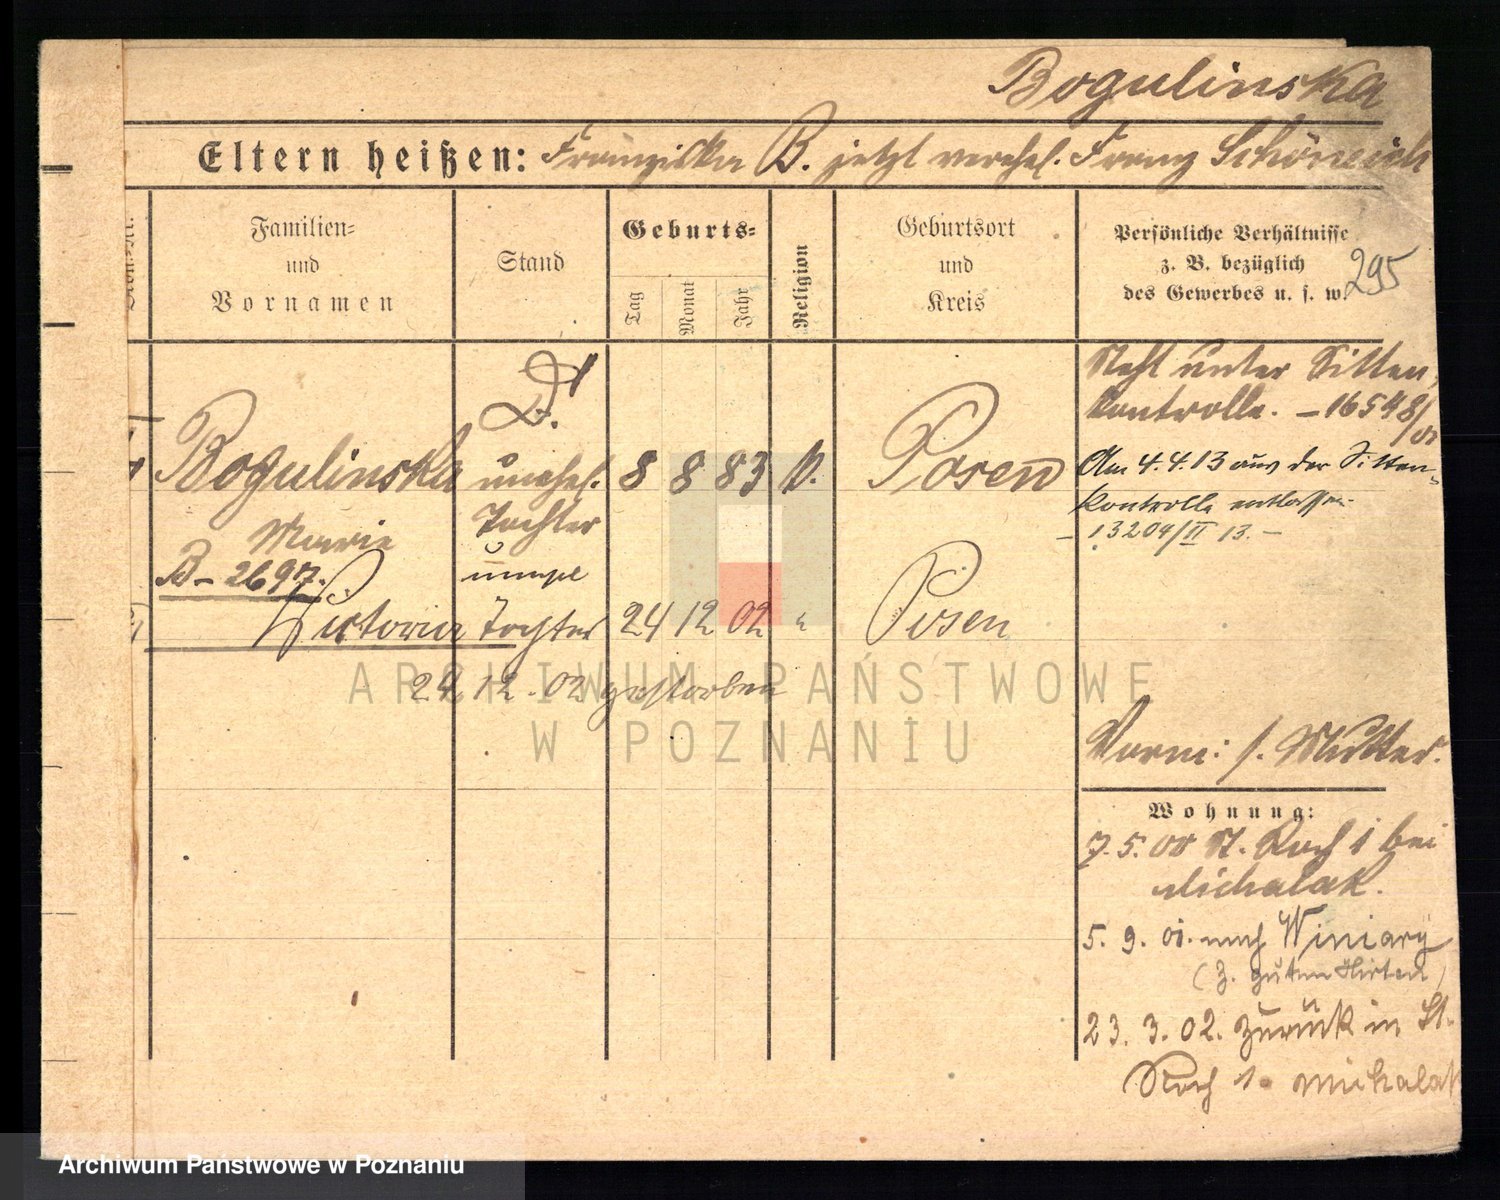 Bogulinska
Eltern heißen: Franziska B. jetzt verehel. Franz Schöneich
Familien-
und
Vornamen
Stand
Geburts-
Tag
Monat
Jahr
Religion
Geburtsort
und
Kreis
Persönliche Verhältnisse
z. B. bezüglich
des Gewerbes u. s. w.
295
Steht unter Sitten
kontrolle. – 16548/
Bogulinska unehel. 8 8 83 Posen
Am 4.4.13 aus der Sitten-
kontrolle entlassen
– 13204/II 13. –
Marie Tochter
B – 2697.
Victoria Tochter 24 12 02 " Posen
24.12.02 gestorben
Vorm: s. Mutter.
Wohnung:
7.5.00 St. Roch 1 bei
Michalak.
5. 9. 01. nach Winiary
(z. guten Hirten)
23. 3. 02. zurück in St.
Roch 1. Michalak
ARCHIWUM PAŃSTWOWE
W POZNANIU
Archiwum Państwowe w Poznaniu